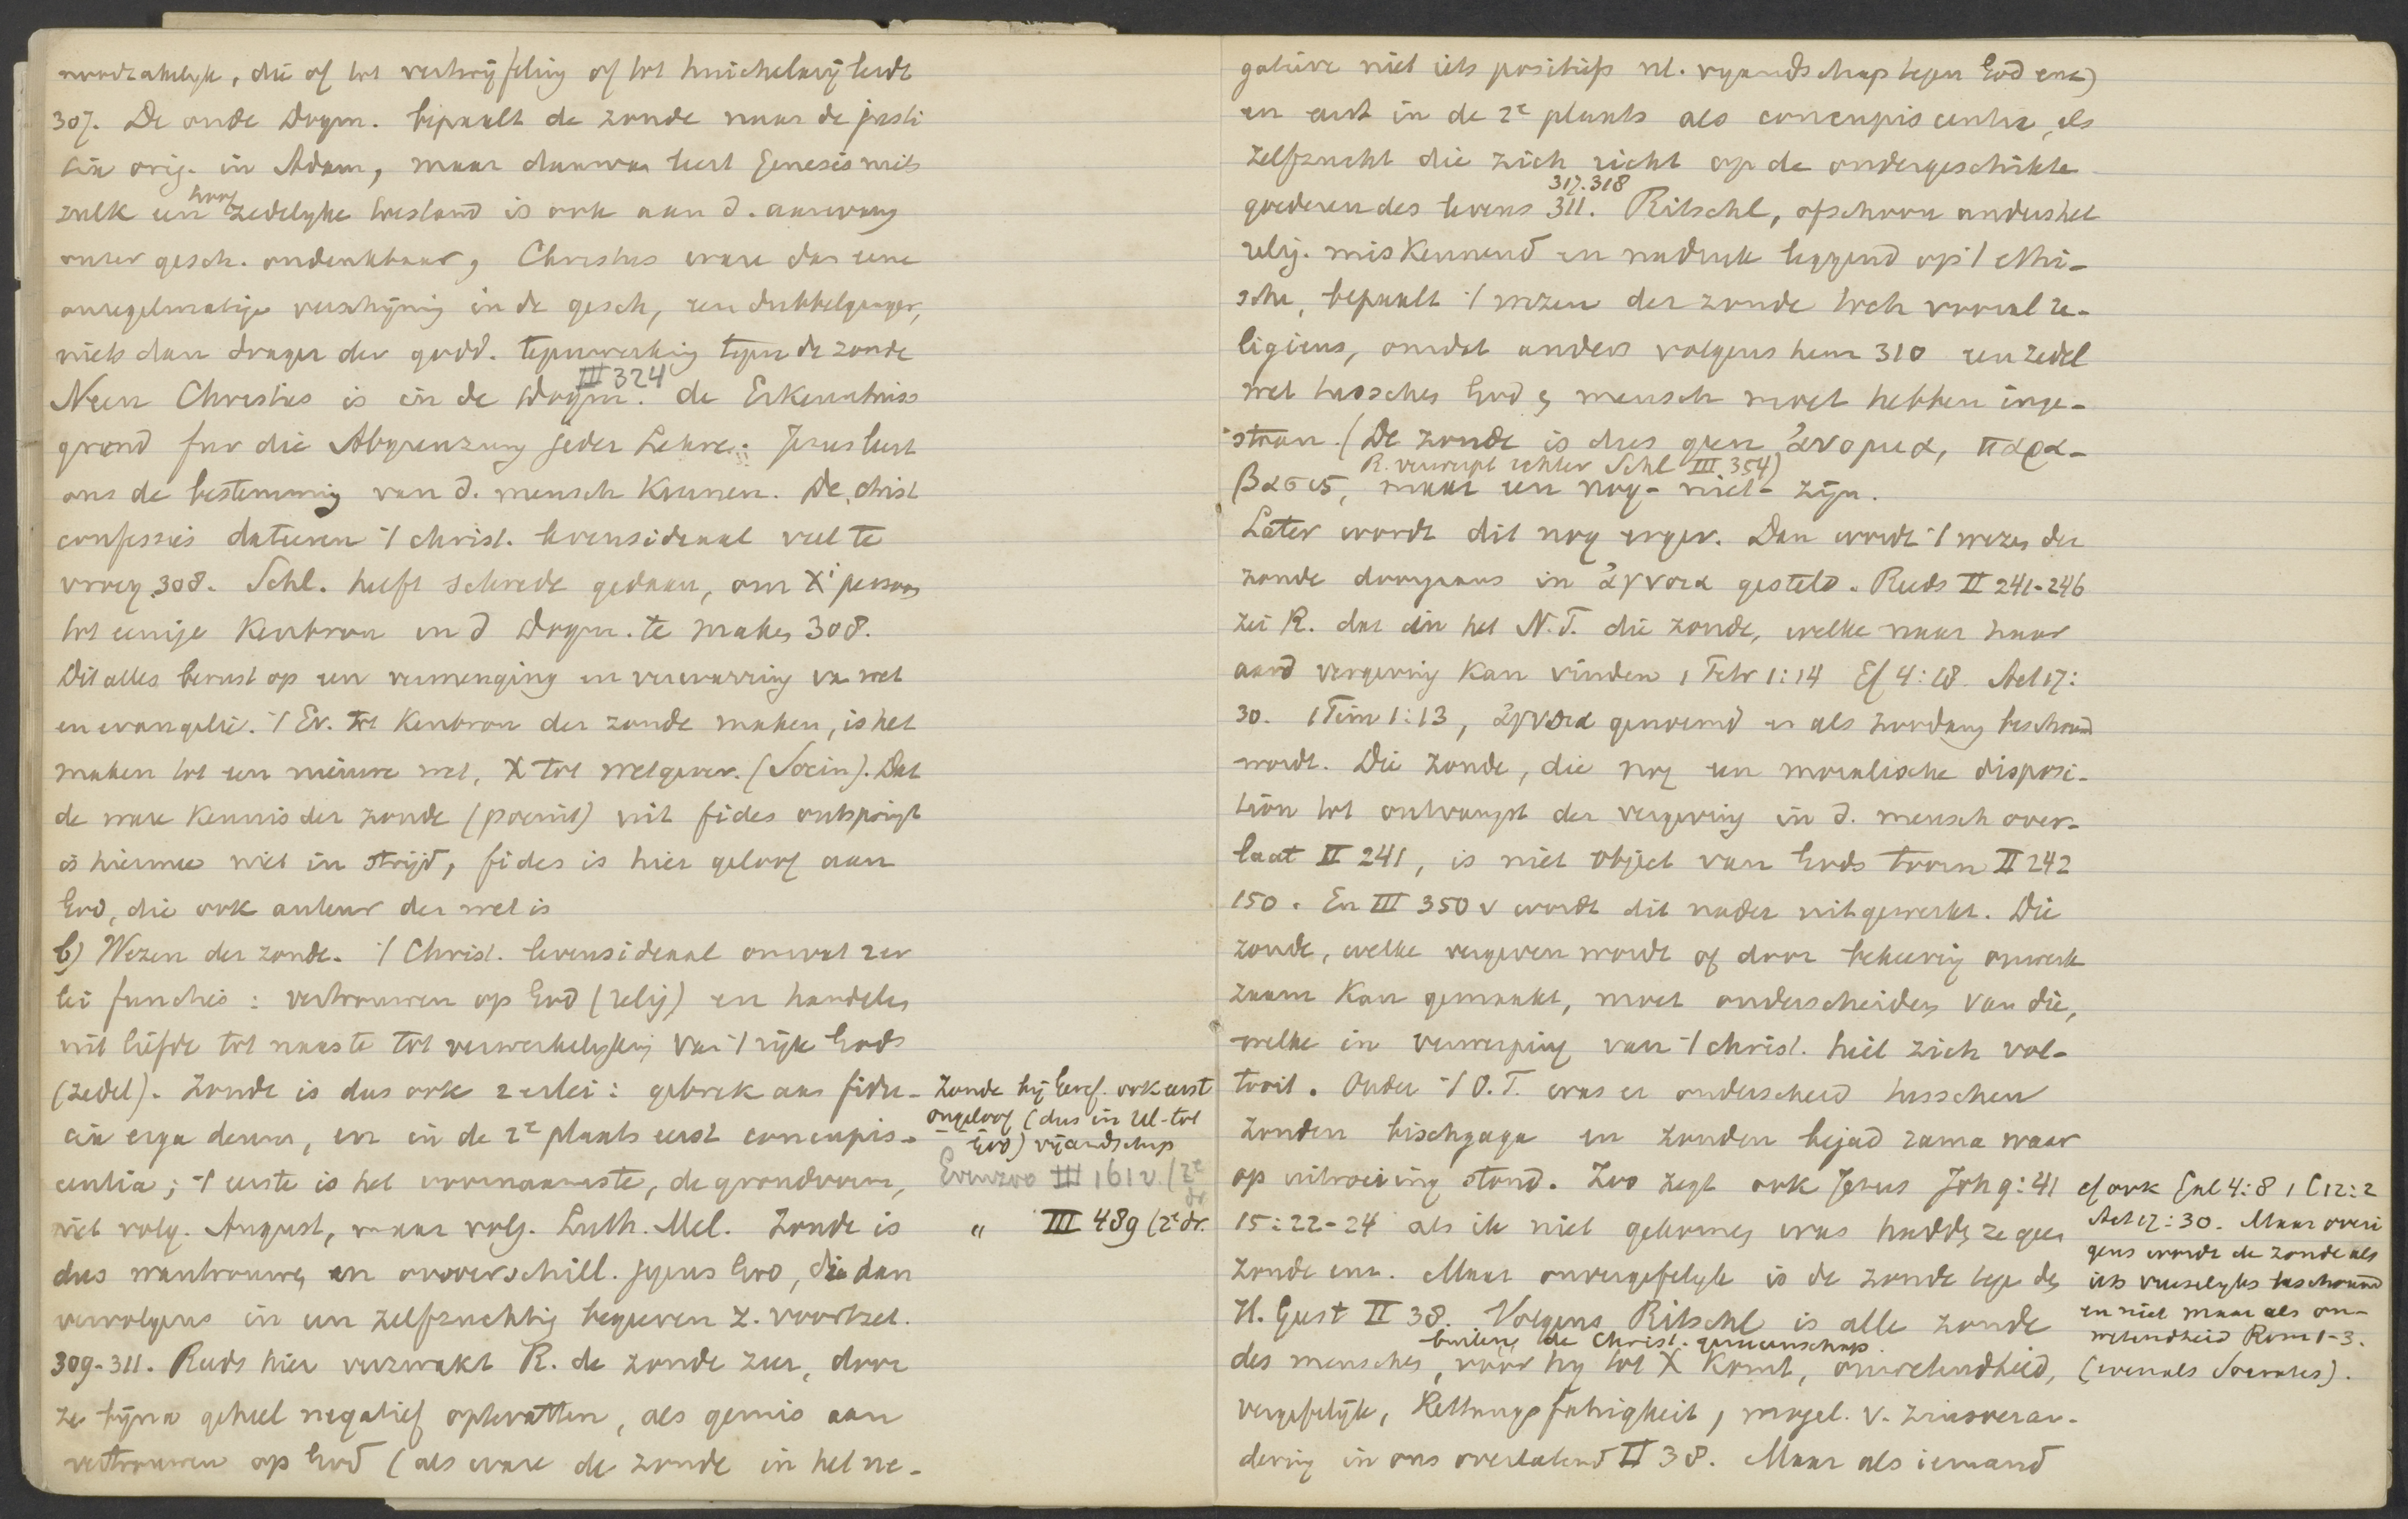 noodzakelijk, die of tot vertwijfeling of tot huichelarij leidt
307. De oude Dogm. bepaalt de zonde naar de justi
tia orig. in Adam, maar daarvan leert Genesis niets
zulk een hoog zedelyke toestand is ook aan d. aanvang
onzer gesch. ondenkbaar, Christus ware dan eene
onregelmatige verschijning in de gesch, een dubbelganger,
niets dan drager der godd. tegenwerking tegen de zonde
III 324
Neen Christus is in de Dogm. de Erkenntniss
grond fur die Abgrenzung jeder Lehre. Jezus leert
ons de bestemming van d. mensch kennen. De christ
confessies dateeren 't christ. levensideaal veel te
vroeg 308. Schl. heeft schrede gedaan, om X' persoon
tot eenige Kenbron in d Dogm. te maken 308.
Dit alles berust op een vermenging en verwarring van wet
en evangelie. 't Ev. tot Kenbron der zonde maken, is het
maken tot een nieuwe wet, X tot wetgever. (Socin). Dat
de ware kennis der zonde (poenit) uit fides ontspringt
is hiermee niet in strijd, fides is hier geloof aan
God, die ook auteur der wet is
b) Wezen der zonde. 't Christ. levensideaal omvat 2 er
lei functies: vertrouwen op God (relig) en handelen
uit liefde tot naaste tot verwerkelyking van 't rijk Gods
(zedel). Zonde is dus ook 2 erlei: gebrek aan fidu-
cia erga deum, en in de 2e plaats eerst concupis-
centia; 't eerste is het voornaamste, de grondvorm,
niet volg. August, maar volg. Luth. Mel. Zonde is
dus wantrouwen en onverschill. jegens God, die dan
vervolgens in een zelfzuchtig begeeren z. voortzet.
309-311. Reeds hier verzwakt R. de zonde zeer, door
ze bijna geheel negatief optevatten, als gemis aan
vertrouwen op God (als ware de zonde in het ne-
Zonde bij Geref. ook eerst
ongeloof (dus in rel-tot
God) vijandschap
Evenzoo III 161 v. (2e
dr
" III 489 (2e dr.
gatieve niet iets positiefs nl. vyandschap tegen God enz)
en eerst in de 2e plaats als concupiscentia, als
zelfzucht die zich richt op de ondergeschikte
317. 318
goederen des levens 311. Ritschl, ofschoon anders het
relig. miskennend en nadruk leggend op 't ethi-
sche, bepaalt 't wezen der zonde toch vooral re-
ligieus, omdat anders volgens hem 310 een zedel
wet tusschen God & mensch moet hebben inge-
staan. (De zonde is dus geen ἀνομια, παρα-
R. verwerpt echter Schl III 354)
βασις, maar een nog-niet-zijn.
Later wordt dit nog erger. Dan wordt 't wezen der
zonde doorgaans in ἀγνοια gesteld. Reeds II 241-246
zei R. dat in het N.T. die zonde, welke naar haar
aard vergeving kan vinden 1 Petr 1:14 Ef 4:18 Act 17:
30. 1 Tim 1:13, ἀγνοια genoemd en als zoodanig beschouwd
wordt. Die zonde, die nog een moralische disposi-
tion tot ontvangst der vergeving in d. mensch over-
laat II 241, is niet object van Gods toorn II 242
150. En III 350 v wordt dit nader uitgewerkt. Die
zonde, welke vergeven wordt of door bekeering onwerk
zaam kan gemaakt, moet onderscheiden van die,
welke in verwerping van 't christ. heil zich vol-
tooit. Onder 't O.T. was er onderscheid tusschen
zonden bischgaga en zonden bejad rama waar
op uitroeiing stond. Zoo zegt ook Jezus Joh 9:41
15:22-24 als ik niet gekomen was hadden ze geen
zonde enz. Maar onvergefelyk is de zonde tegen den
H. Geest II 38. Volgens Ritschl is alle zonde
buiten de Christ. gemeenschap
des menschen, vóór hij tot X komt, onwetendheid,
vergefelijk, Rettungsfahigkeit, mogel. v. zinsveran-
dering in ons overlatend II 38. Maar als iemand
cf ook Gal 4:8 1 C 12:2
Act 17:30. Maar overi
gens wordt de zonde als
iets vreeselyks beschouwd
en niet maar als on-
wetendheid Rom 1-3.
(evenals Socrates).